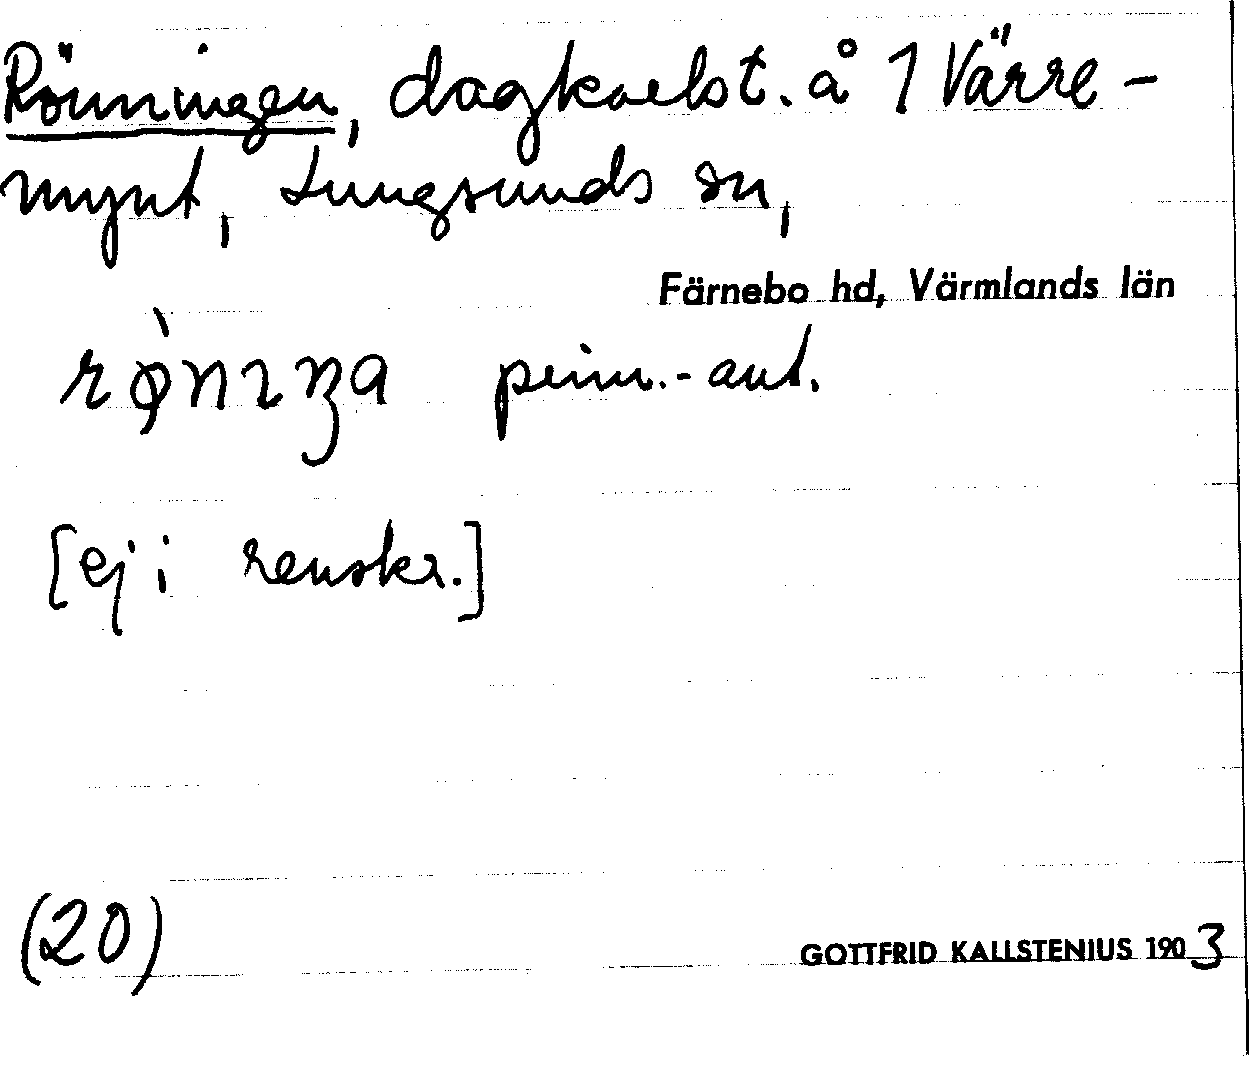 Rönningen, dagkarlst. å 1 Värre-
mynt, Lungsunds sn,
Färnebo hd, Värmlands län
prim.-ant.
[ej i renskr.]
(20)
GOTTFRID KALLSTENIUS 1903